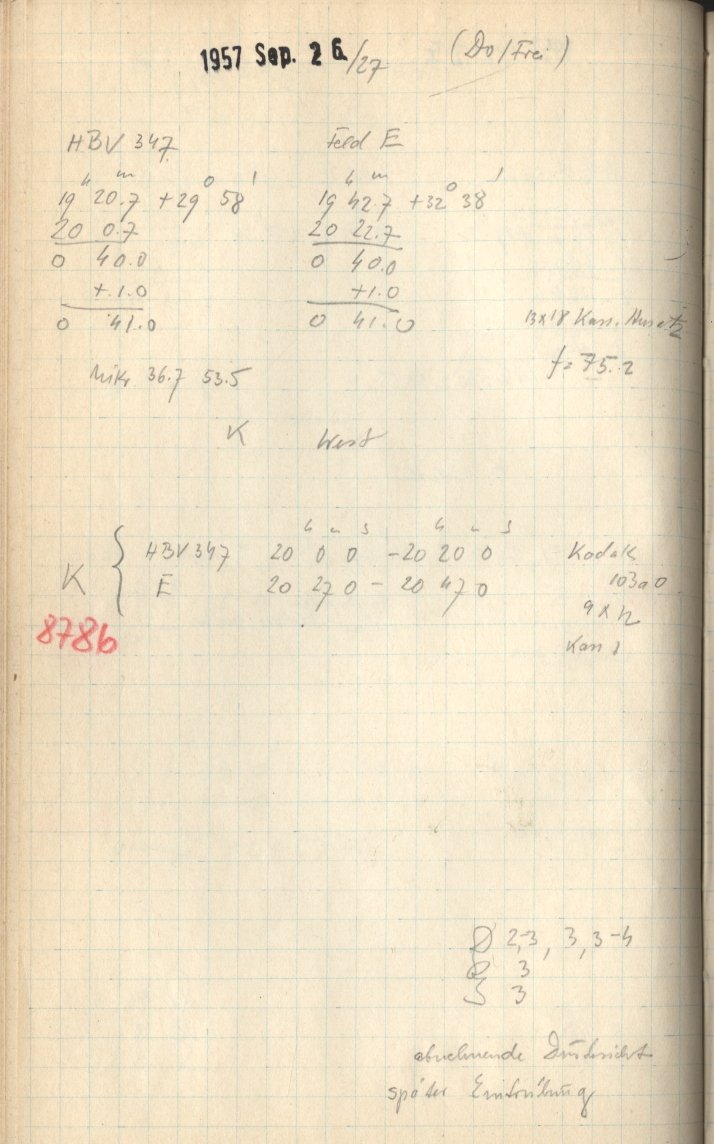 1957 Sep. 26/27 (Do/Frei)
HBV 347 Feld E
h m o ' h m o '
19 20.7 +29 58 19 42.7 +32 38
20 0.7 20 22.7
0 40.0 0 40.0
+1.0 +1.0
0 41.0 0 41.0
13x18 Kass. Ansatz
f= 75.2
Mikr 36.7 53.5
K West
h m s h m s
HBV 347 20 0 0 - 20 20 0 Kodak
K E 20 27 0 - 20 47 0 103a0
9x12
8786
Kass 1
D 2-3, 3, 3-4
3
S 3
abnehmende Durchsicht
später Eintrübung